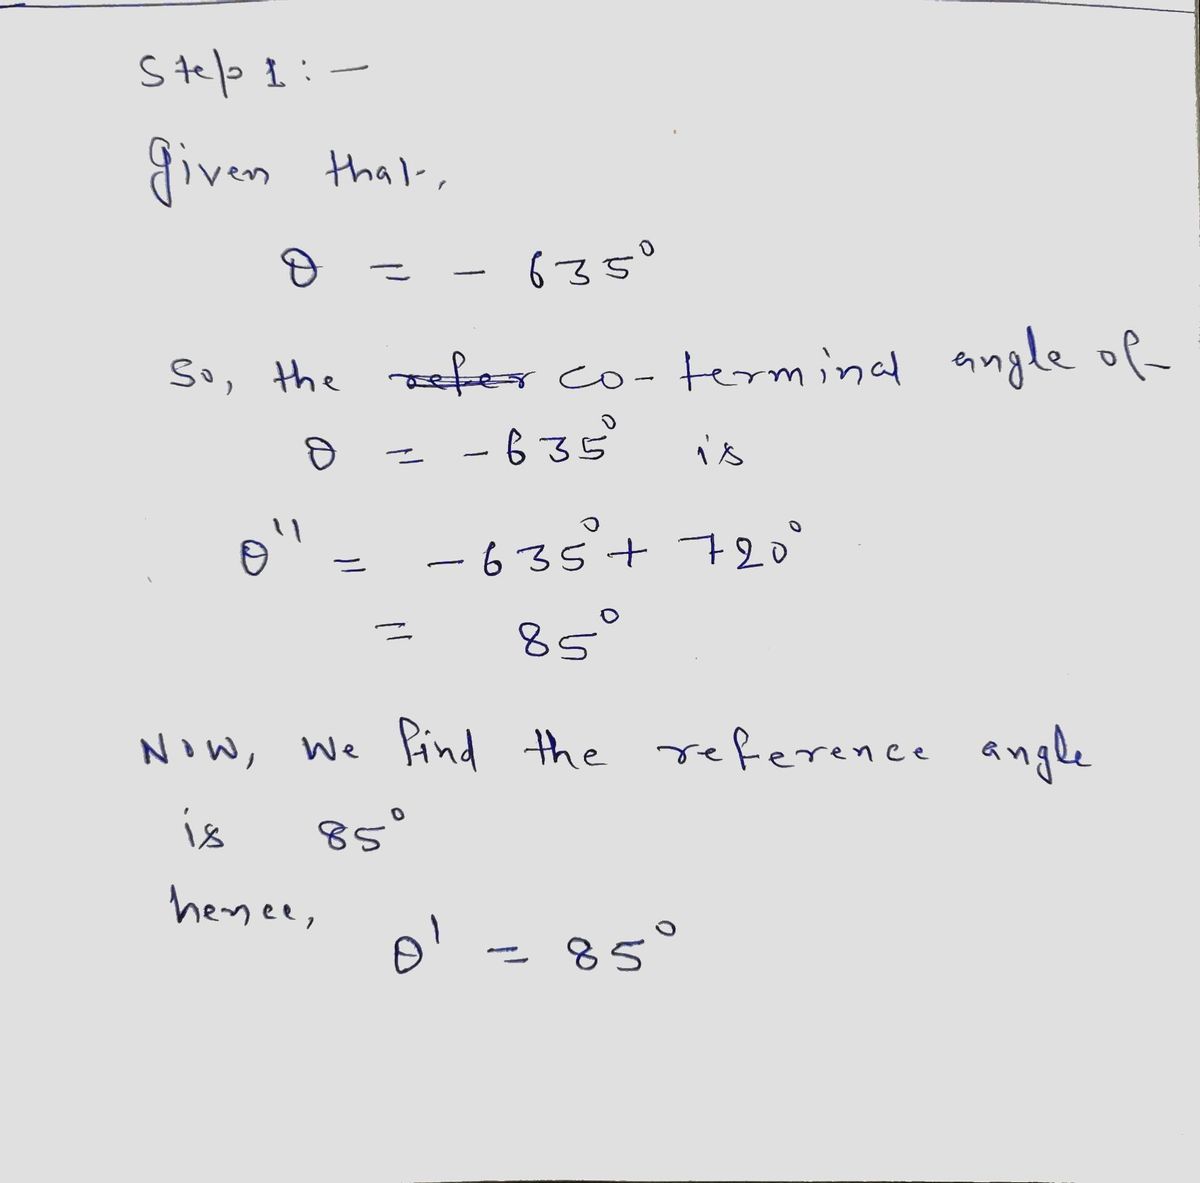 Step 1:-
Given that,
θ = - 635°
So, the refer co-terminal angle of
θ = -635° is
θ'' = -635° + 720°
= 85°
Now, We find the reference angle
is 85°
hence,
θ' = 85°